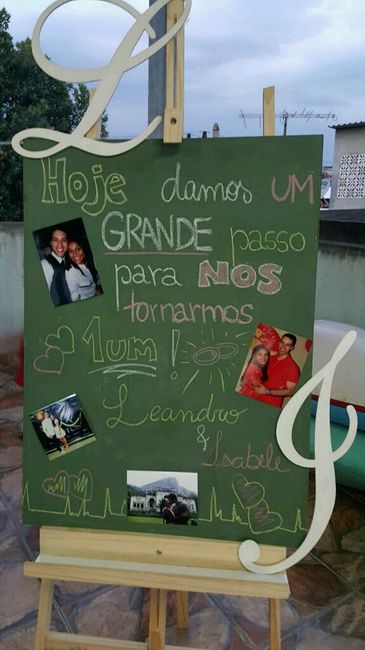 L
Hoje damos UM
GRANDE passo
para NOS
tornarmos
1um!
Leandro
&
Isabele
I